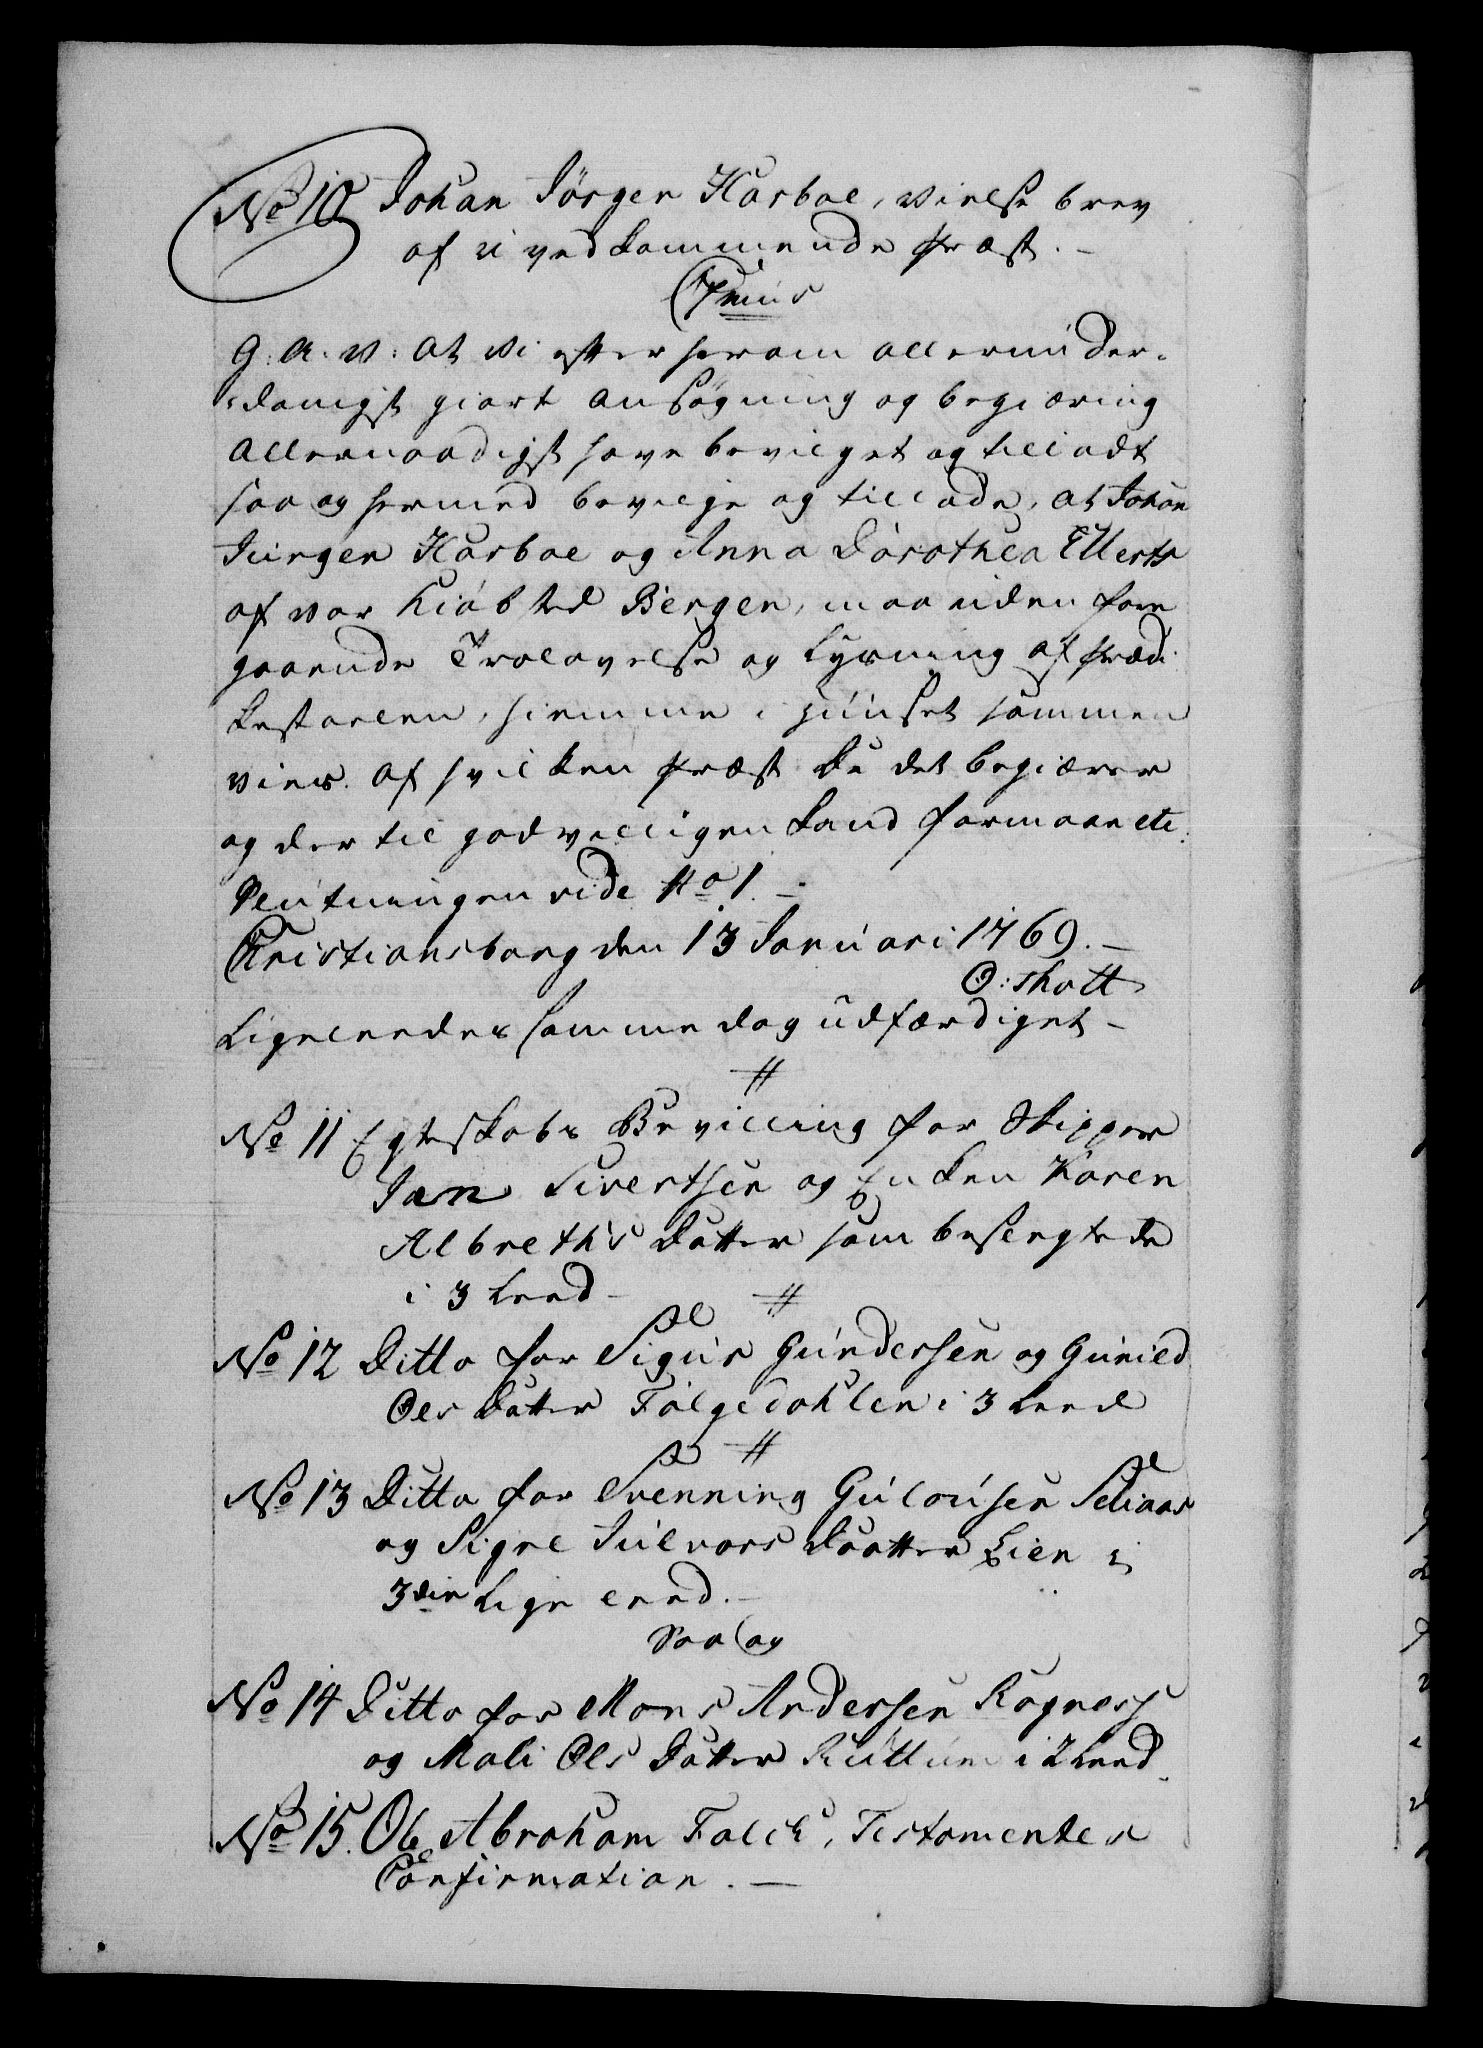 No 10 Johan Jørgen Harboe, vielse brev
af uvedkommende præst. –
G: A: V: At Vi efter herom allerunder-
danigst giort ansøgning og begiæring
allernaadigst have bevilget og tilladt
saa og hermed bevilge og tillade, at Johan
Jürgen Harboe og Anna Dorothea Ellerts
af vor Kiøbsted Bergen, maa uden fore
gaaende Trolovelse og Lysning af prædi
kestolen, hiemme i Huuset sammen
vies af hvilken præst De det begiærer
og der til godvilligen kand formaae etc.
Slutningen vide No 1. –
Christiansborg den 13 Januari 1769. –
O: Thott
Ligeleedes samme dag udfærdiget –
No 11 Egteskabs Bevilling for Skipper
Jan Sivertsen og Enken Karen
Albreths Datter som besvogrede
i 3 Leed –
No 12 Ditto for Sigur Gundersen og Guried
Ols Datter i 3 Leed
No 13 Ditto for Svenning Gulousen
og Signe Datter Lien i
3die Lige Leed. –
No 14 Ditto for Mons Andersen Rogness
og Mali Ols Datter i 2 Leed
No 15. Ole Abraham Falch, Testamentes
Confirmation. –